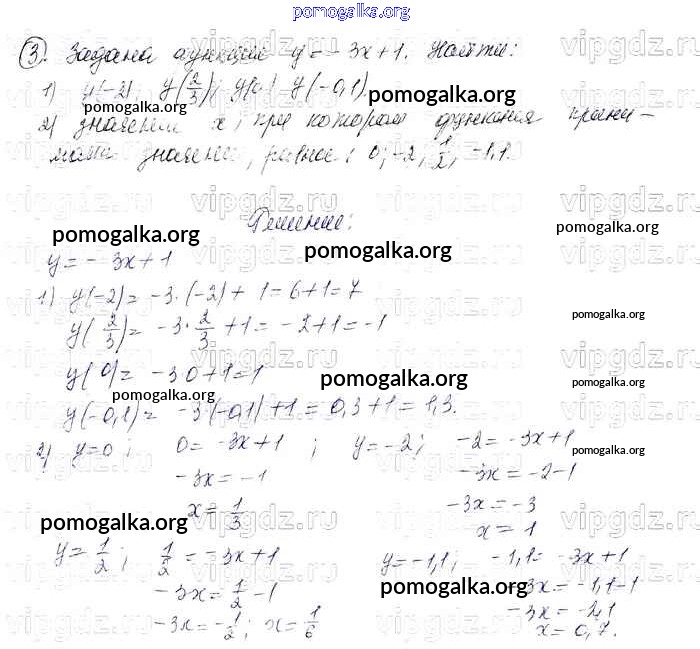 pomogalka.org
③. Задана функция y = - 3x + 1. Найти:
1) y(-2), y(2/3), y(0), y(-0,1).
2) значение x, при котором функция прини-
мает значение, равное: 0; -2, 1/2, -1,1.
Решение:
pomogalka.org pomogalka.org pomogalka.org
y = - 3x + 1
1) y(-2) = -3·(-2) + 1 = 6 + 1 = 7
pomogalka.org
y(2/3) = -3·2/3 + 1 = -2 + 1 = -1
y(0) = -3·0 + 1 = 1
pomogalka.org pomogalka.org pomogalka.org
y(-0,1) = -3·(-0,1) + 1 = 0,3 + 1 = 1,3.
2) y = 0; 0 = -3x + 1; y = -2; -2 = -3x + 1
pomogalka.org
-3x = -1 -3x = -2-1
x = 1/3 -3x = -3
pomogalka.org pomogalka.org
x = 1
y = 1/2; 1/2 = -3x + 1 y = -1,1; -1,1 = -3x + 1
-3x = 1/2 - 1 -3x = -1,1-1
pomogalka.org
-3x = -1/2; x = 1/6 -3x = -2,1
x = 0,7.
vipgdz.ru